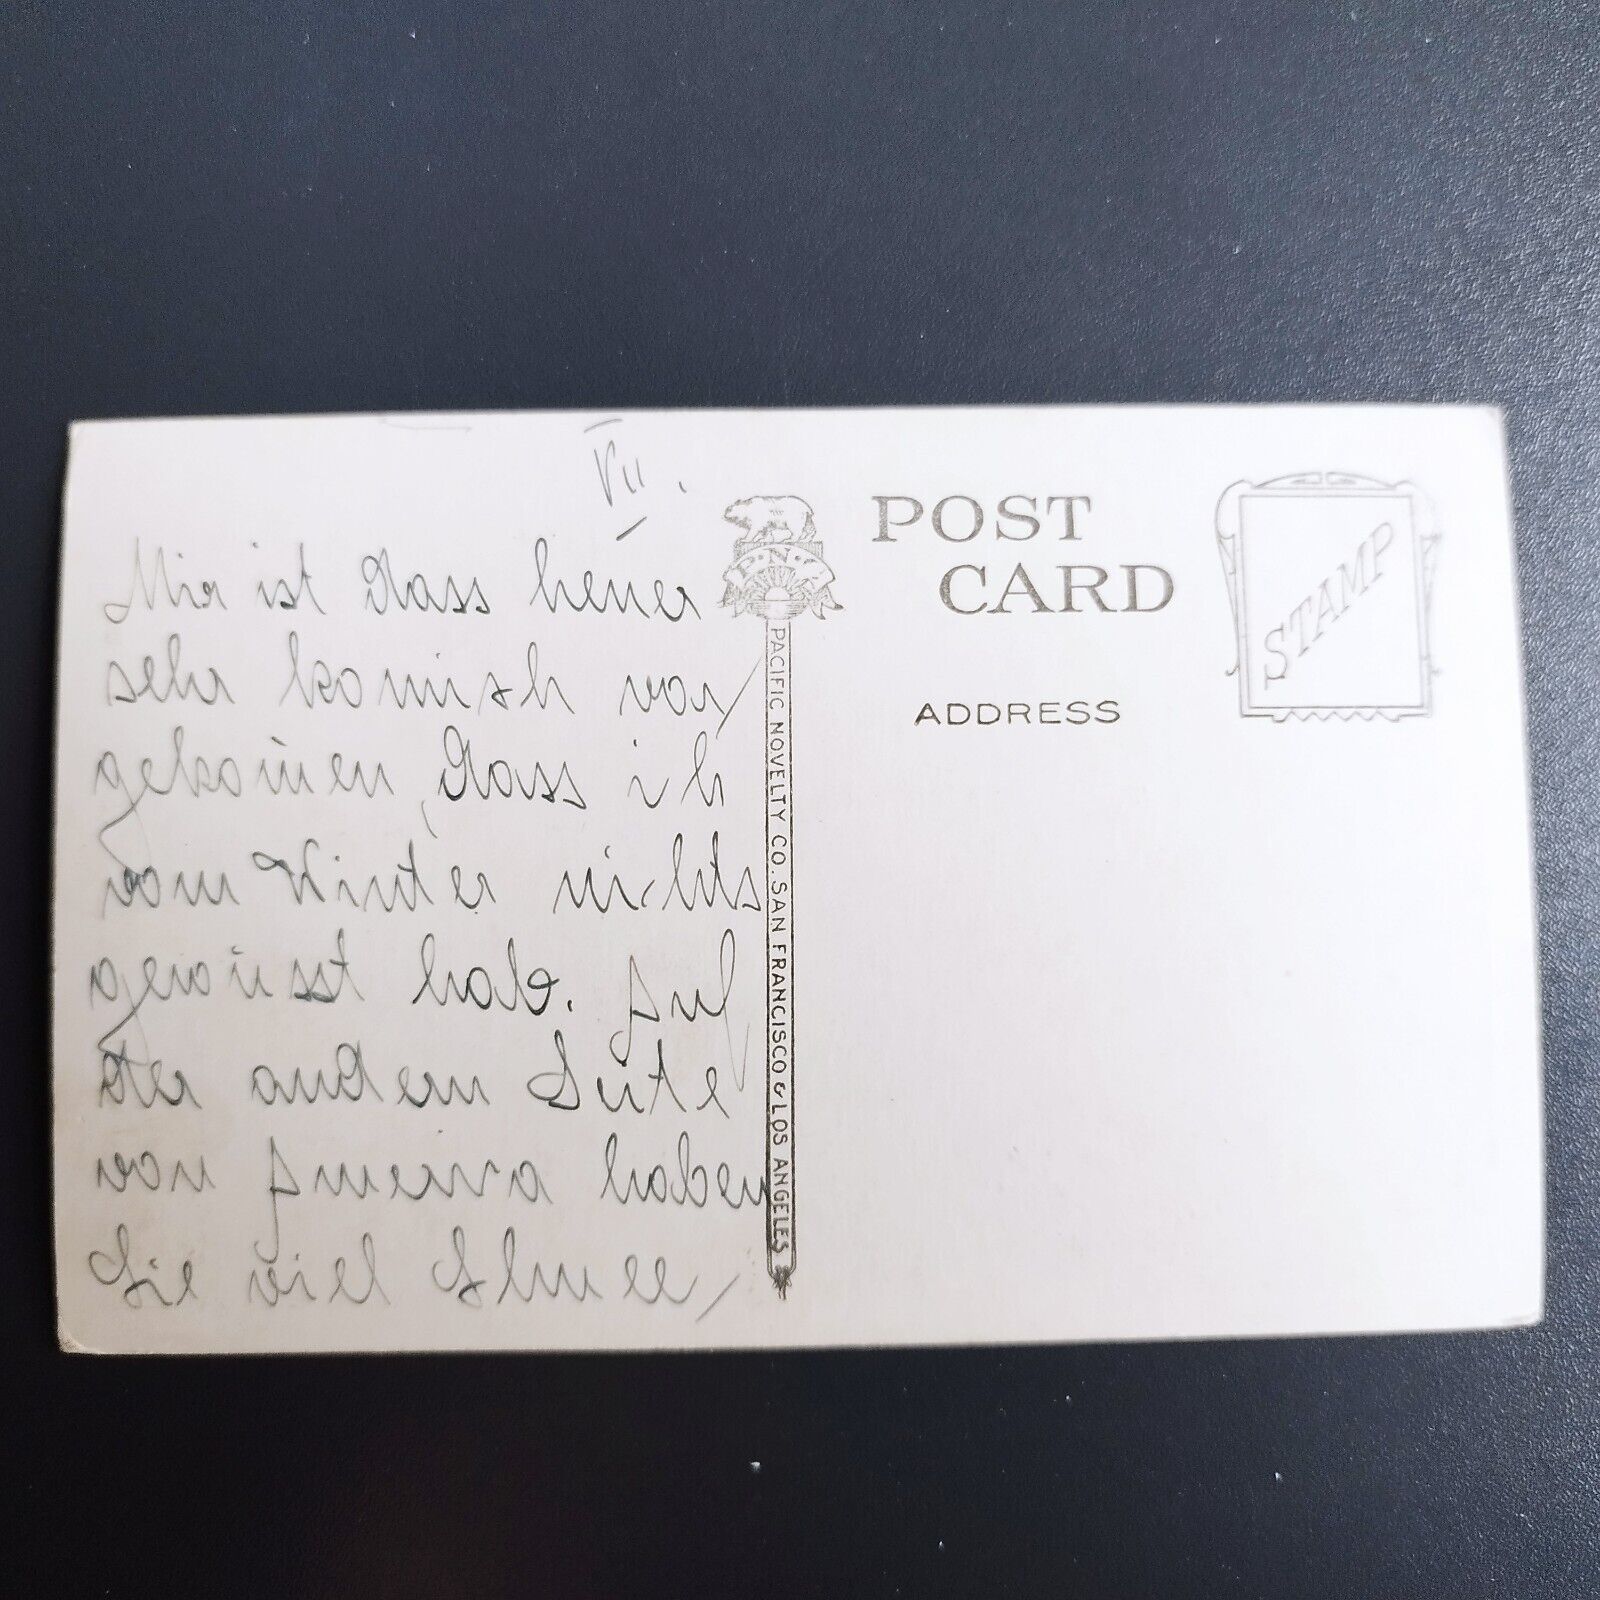 VII.
Mir ist dass heuer
sehr komisch vor/
gekom̅en, dass ich
vom Winter nichts
gewusst habe. Auf
der andern Seite
von Amerika haben
Sie viel Schnee/
P.N.C.
PACIFIC NOVELTY CO. SAN FRANCISCO & LOS ANGELES
POST
CARD
ADDRESS
STAMP